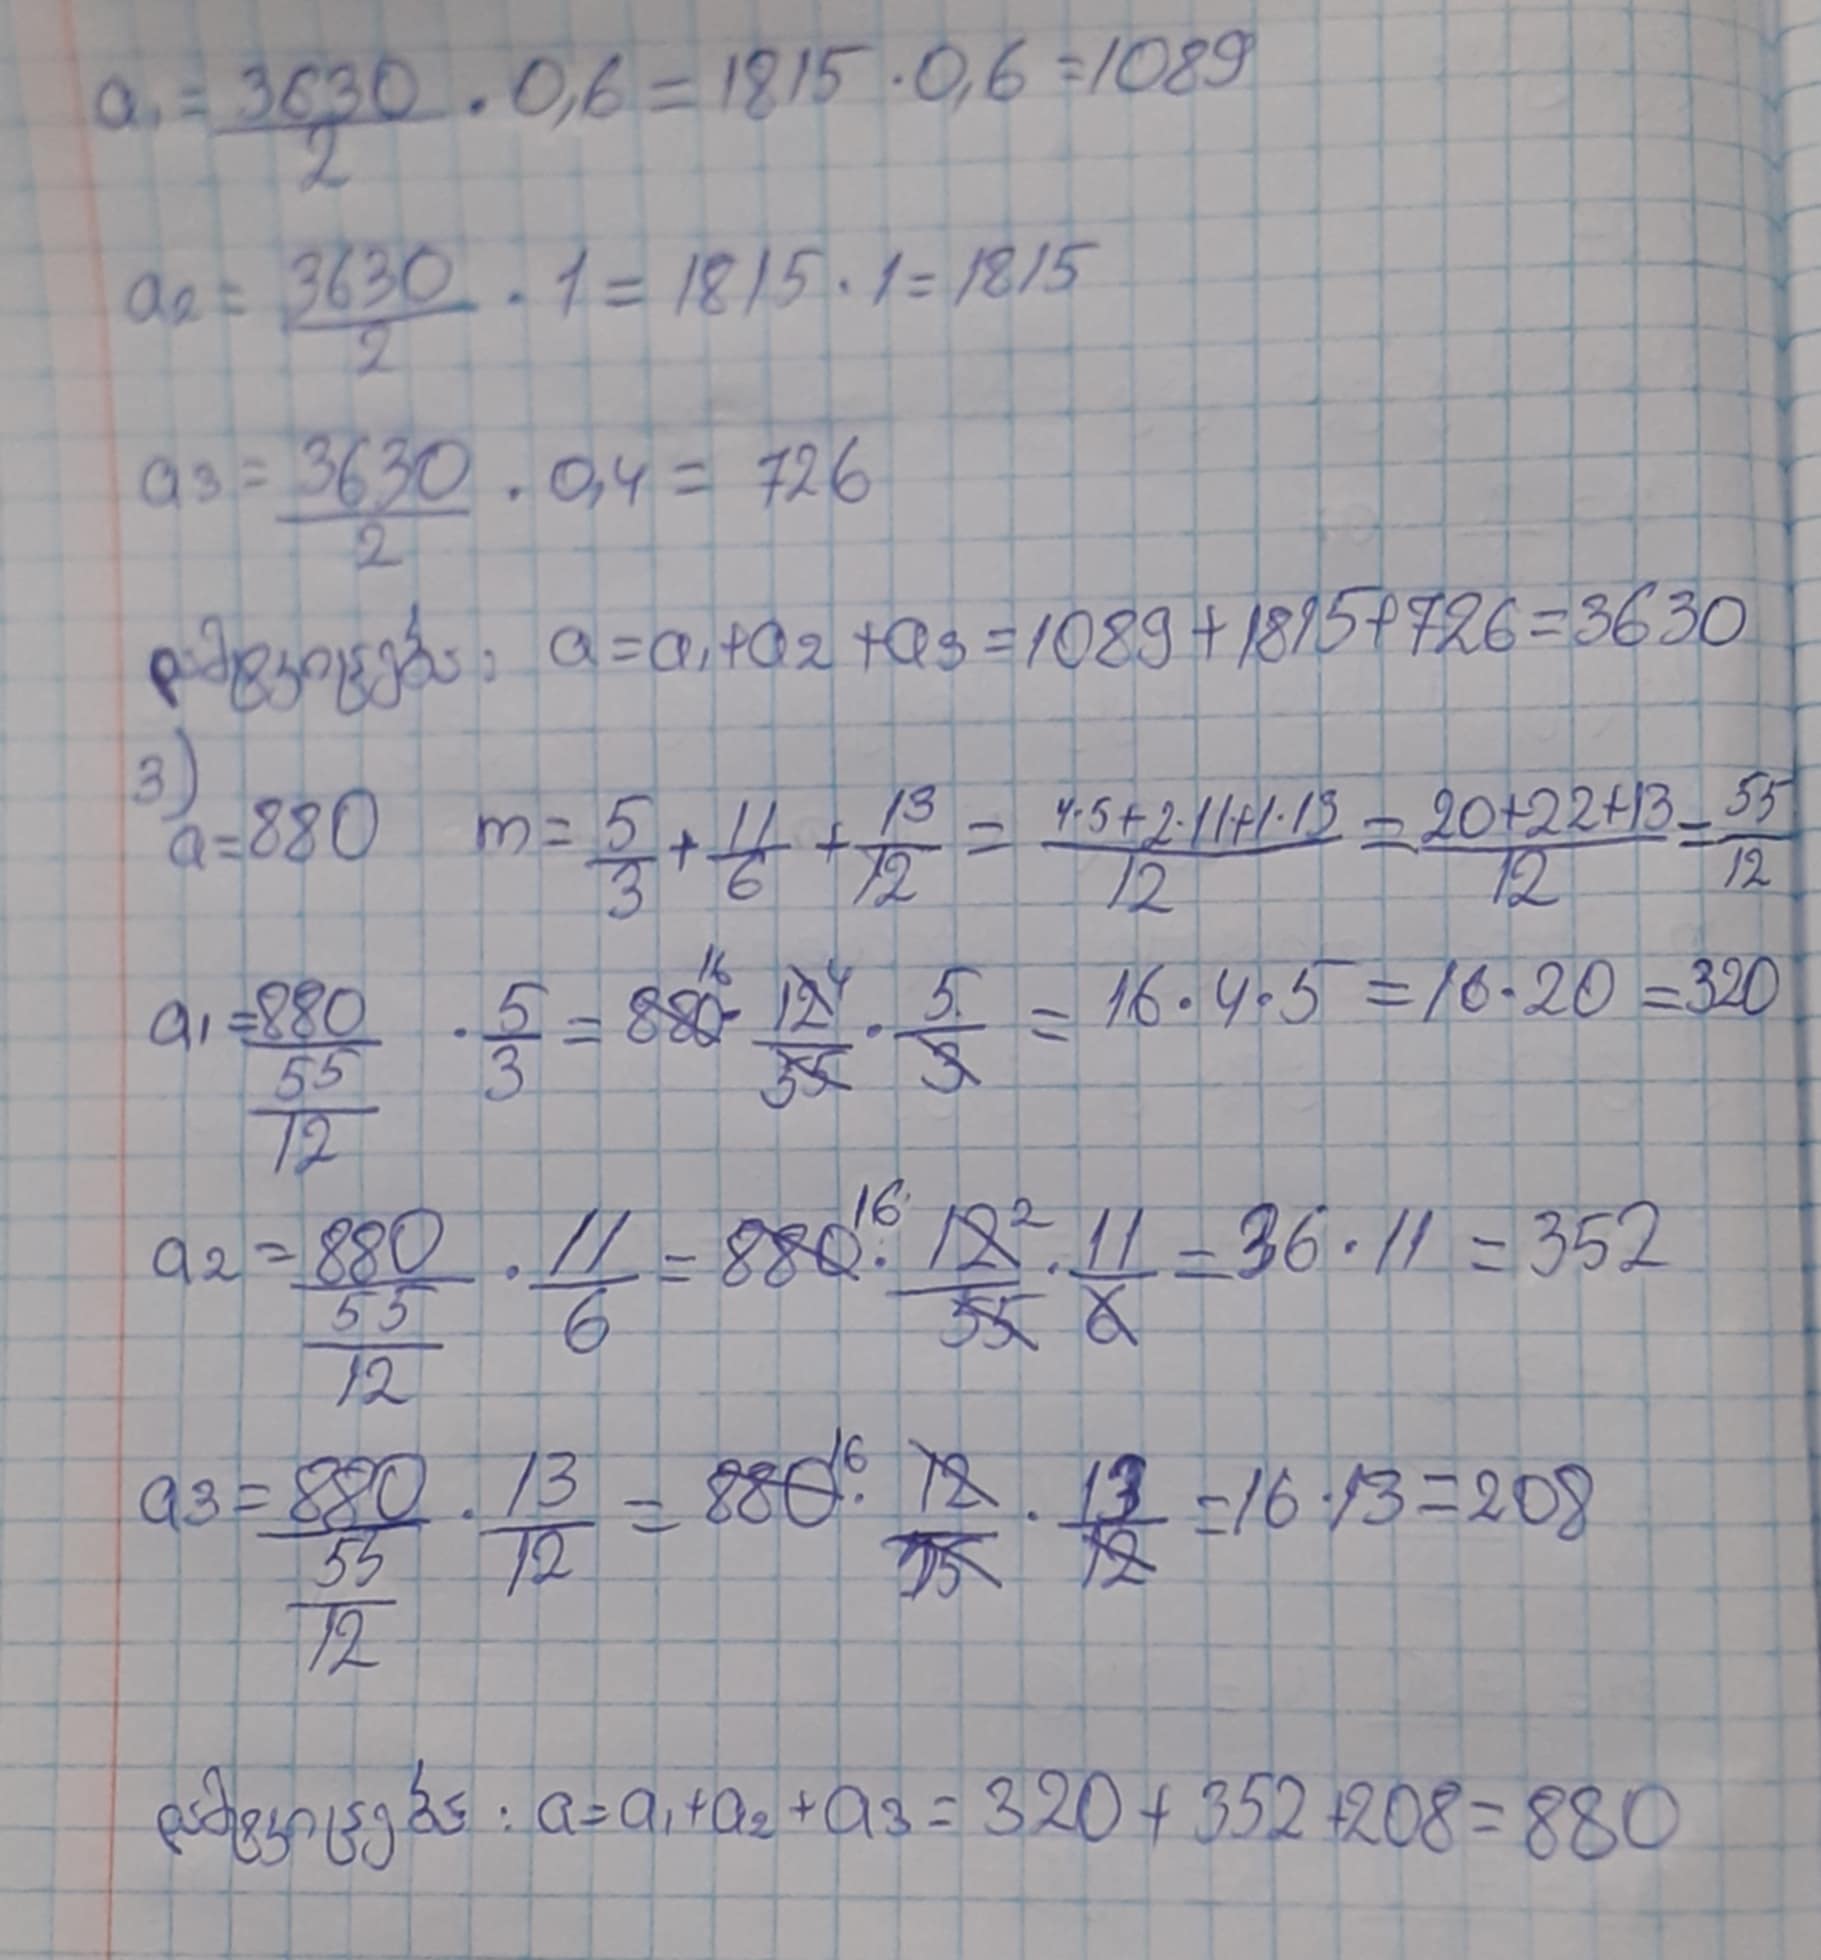 a₁ = 3630/2 · 0,6 = 1815 · 0,6 = 1089
a₂ = 3630/2 · 1 = 1815 · 1 = 1815
a₃ = 3630/2 · 0,4 = 726
დამტკიცება: a = a₁ + a₂ + a₃ = 1089 + 1815 + 726 = 3630
3)
a = 880 m = 5/3 + 11/6 + 13/12 = (4·5+2·11+1·13)/12 = (20+22+13)/12 = 55/12
a₁ = 880/(55/12) · 5/3 = 880 16 · 12 4/55 · 5/3 = 16 · 4 · 5 = 16 · 20 = 320
a₂ = 880/(55/12) · 11/6 = 880 16 · 12 2/55 · 11/6 = 36 · 11 = 352
a₃ = 880/(55/12) · 13/12 = 880 16 · 12/55 · 13/12 = 16 · 13 = 208
დამტკიცება: a = a₁ + a₂ + a₃ = 320 + 352 + 208 = 880